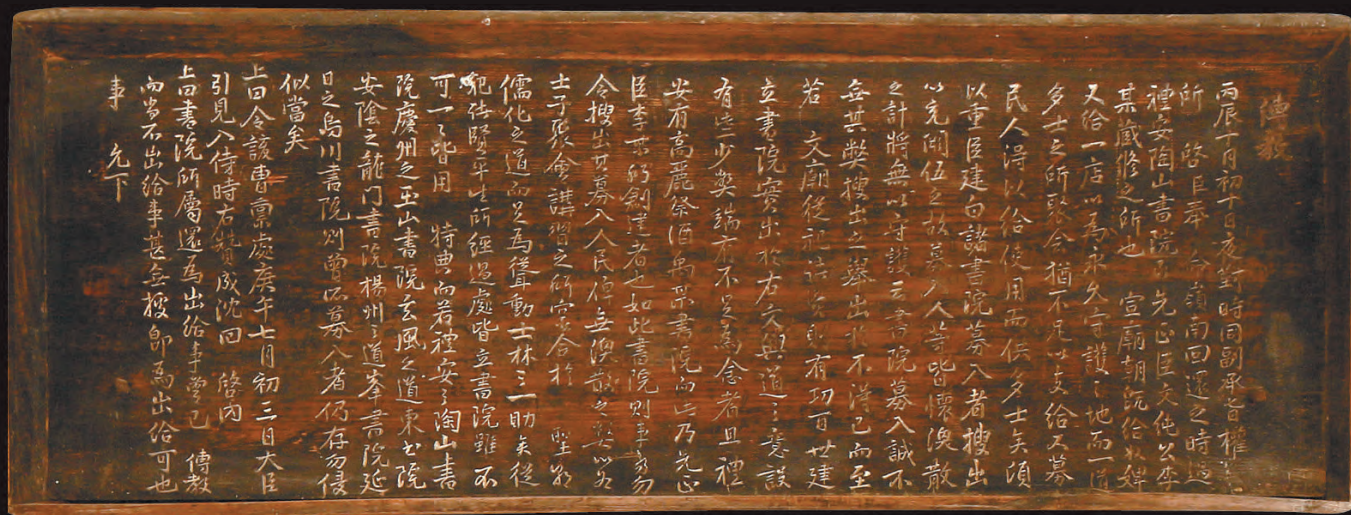 傳教
丙辰十月初十日夜對時同副承旨權
所 啓臣奉 命嶺南回還之時過
禮安陶山書院乃先正臣文純公李
其藏修之所也 宣廟朝旣給奴婢
又給一店以爲永久守護之地而一道
多士之所聚會猶不足以支給又募
民人得以給使用而供多士矣頃
以重臣建白諸書院募入者搜出
以充閑伍之故募入人等皆懷渙散
之計將無以守護云書院募入誠不
無其弊搜出之擧出於不得已而至
若 文廟從祀諸賢則有功百世建
立書院實出於右文興道之意設
有些少弊端有不足爲念者且禮
安有高麗祭酒禹倬書院而此乃先正
臣李 所創建者也如此書院則事勿
令搜出其募入人民俾無渙散之弊以爲
士子聚會講習之所實合於 聖朝
儒化之道而足爲聳動士林之一助矣從
祀儒賢平生所經過處皆立書院雖不
可一一皆用 特典而若禮安之陶山書
院慶州之玉山書院玄風之道東書院
安陰之龍門書院楊州之道峯書院延
日之烏川書院則曾已募入者仍存勿侵
似當矣
上曰令該曹稟處庚午七月初三日大臣
引見入侍時右贊成沈 所 啓內
上曰書院所屬還爲出給事曾已 傳敎
而尙不出給事甚無據卽爲出給可也
事 允下